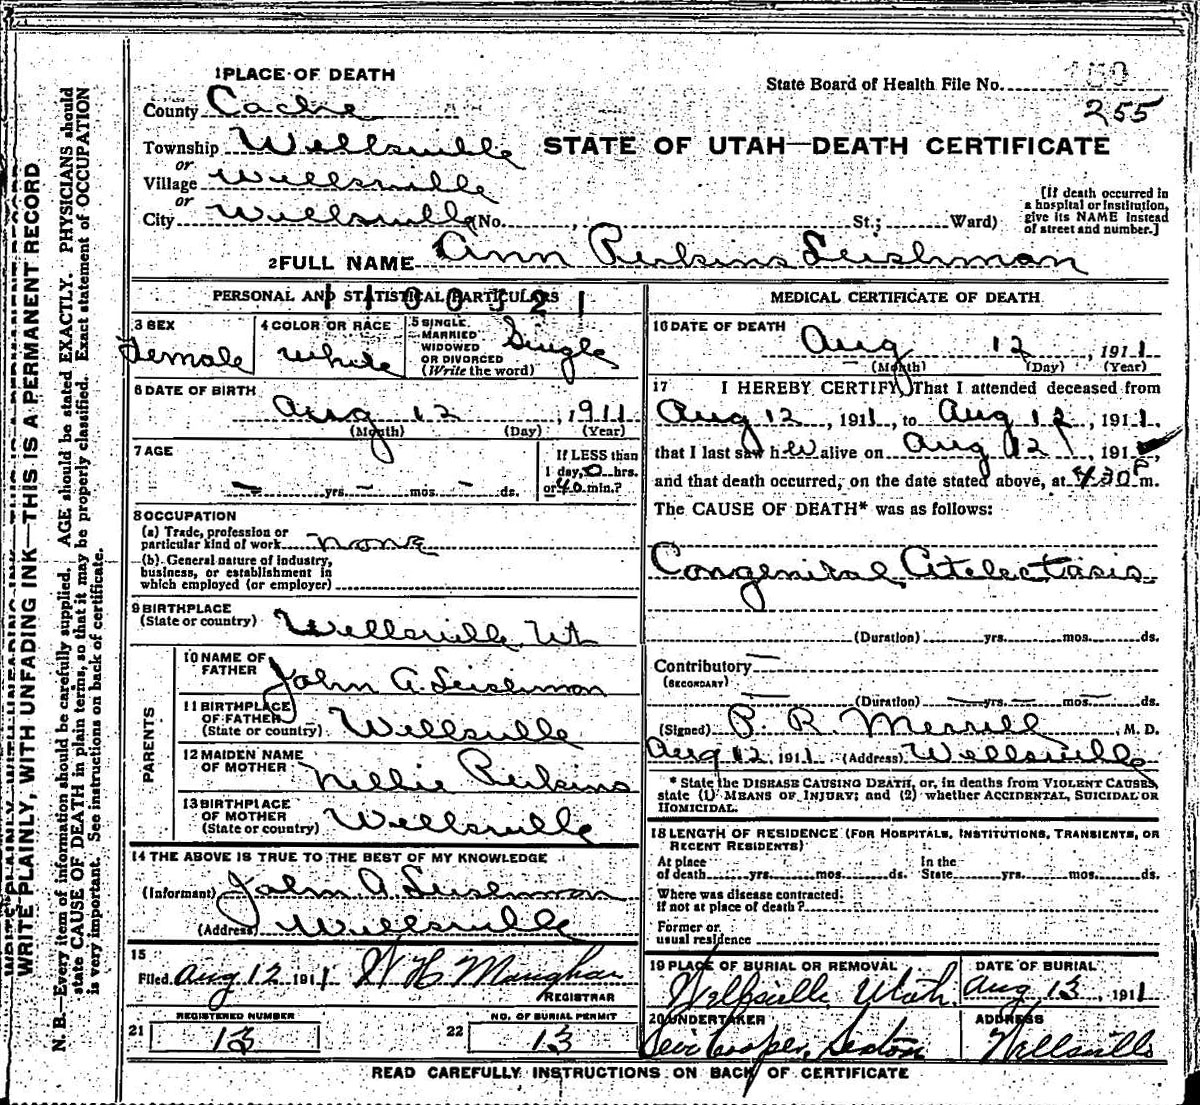 1 PLACE OF DEATH
State Board of Health File No. 150
255
County Cache
Township Wellsville
or
Village Wellsville
or
City Wellsville (No. , St.; Ward)
STATE OF UTAH—DEATH CERTIFICATE
[If death occurred in
a hospital or institution,
give its NAME instead
of street and number.]
2 FULL NAME Ann Perkins Leishman
PERSONAL AND STATISTICAL PARTICULARS
1100521
3 SEX
Female
4 COLOR OR RACE
White
5 SINGLE,
MARRIED
WIDOWED
OR DIVORCED
(Write the word)
Single
6 DATE OF BIRTH
Aug 12, 1911
(Month) (Day) (Year)
7 AGE
— yrs. — mos. — ds.
If LESS than
1 day, 0 hrs.
or 40 min.?
8 OCCUPATION
(a) Trade, profession or
particular kind of work none
(b) General nature of industry,
business, or establishment in
which employed (or employer)
9 BIRTHPLACE
(State or country) Wellsville Ut
PARENTS
10 NAME OF
FATHER John A. Leishman
11 BIRTHPLACE
OF FATHER
(State or country) Wellsville
12 MAIDEN NAME
OF MOTHER Nellie Perkins
13 BIRTHPLACE
OF MOTHER
(State or country) Wellsville
14 THE ABOVE IS TRUE TO THE BEST OF MY KNOWLEDGE
(Informant) John A Leishman
(Address) Wellsville
15
Filed Aug 12 1911 W H Maughan
REGISTRAR
21
REGISTERED NUMBER
13
22
NO. OF BURIAL PERMIT
13
MEDICAL CERTIFICATE OF DEATH
16 DATE OF DEATH
Aug 12, 1911
(Month) (Day) (Year)
17 I HEREBY CERTIFY, That I attended deceased from
Aug 12, 1911, to Aug 12, 1911,
that I last saw her alive on Aug 12, 191
and that death occurred, on the date stated above, at 4:30 P m.
The CAUSE OF DEATH* was as follows:
Congenital Atelectasis
(Duration) yrs. mos. ds.
Contributory —
(SECONDARY)
— (Duration) — yrs. — mos. — ds.
(Signed) P. R. Merrill, M. D.
Aug 12 1911 (Address) Wellsville
* State the DISEASE CAUSING DEATH, or, in deaths from VIOLENT CAUSES,
state (1) MEANS OF INJURY; and (2) whether ACCIDENTAL, SUICIDAL OR
HOMICIDAL.
18 LENGTH OF RESIDENCE (FOR HOSPITALS, INSTITUTIONS, TRANSIENTS, OR
RECENT RESIDENTS)
At place
of death yrs. mos. ds.
In the
State yrs. mos. ds.
Where was disease contracted.
If not at place of death?
Former or
usual residence
19 PLACE OF BURIAL OR REMOVAL
Wellsville Utah.
DATE OF BURIAL
Aug 13, 1911
20 UNDERTAKER
Levi Cooper, Sexton
ADDRESS
Wellsville
READ CAREFULLY INSTRUCTIONS ON BACK OF CERTIFICATE
WRITE PLAINLY, WITH UNFADING INK—THIS IS A PERMANENT RECORD
N. B.—Every item of information should be carefully supplied. AGE should be stated EXACTLY. PHYSICIANS should
state CAUSE OF DEATH in plain terms, so that it may be properly classified. Exact statement of OCCUPATION
is very important. See instructions on back of certificate.